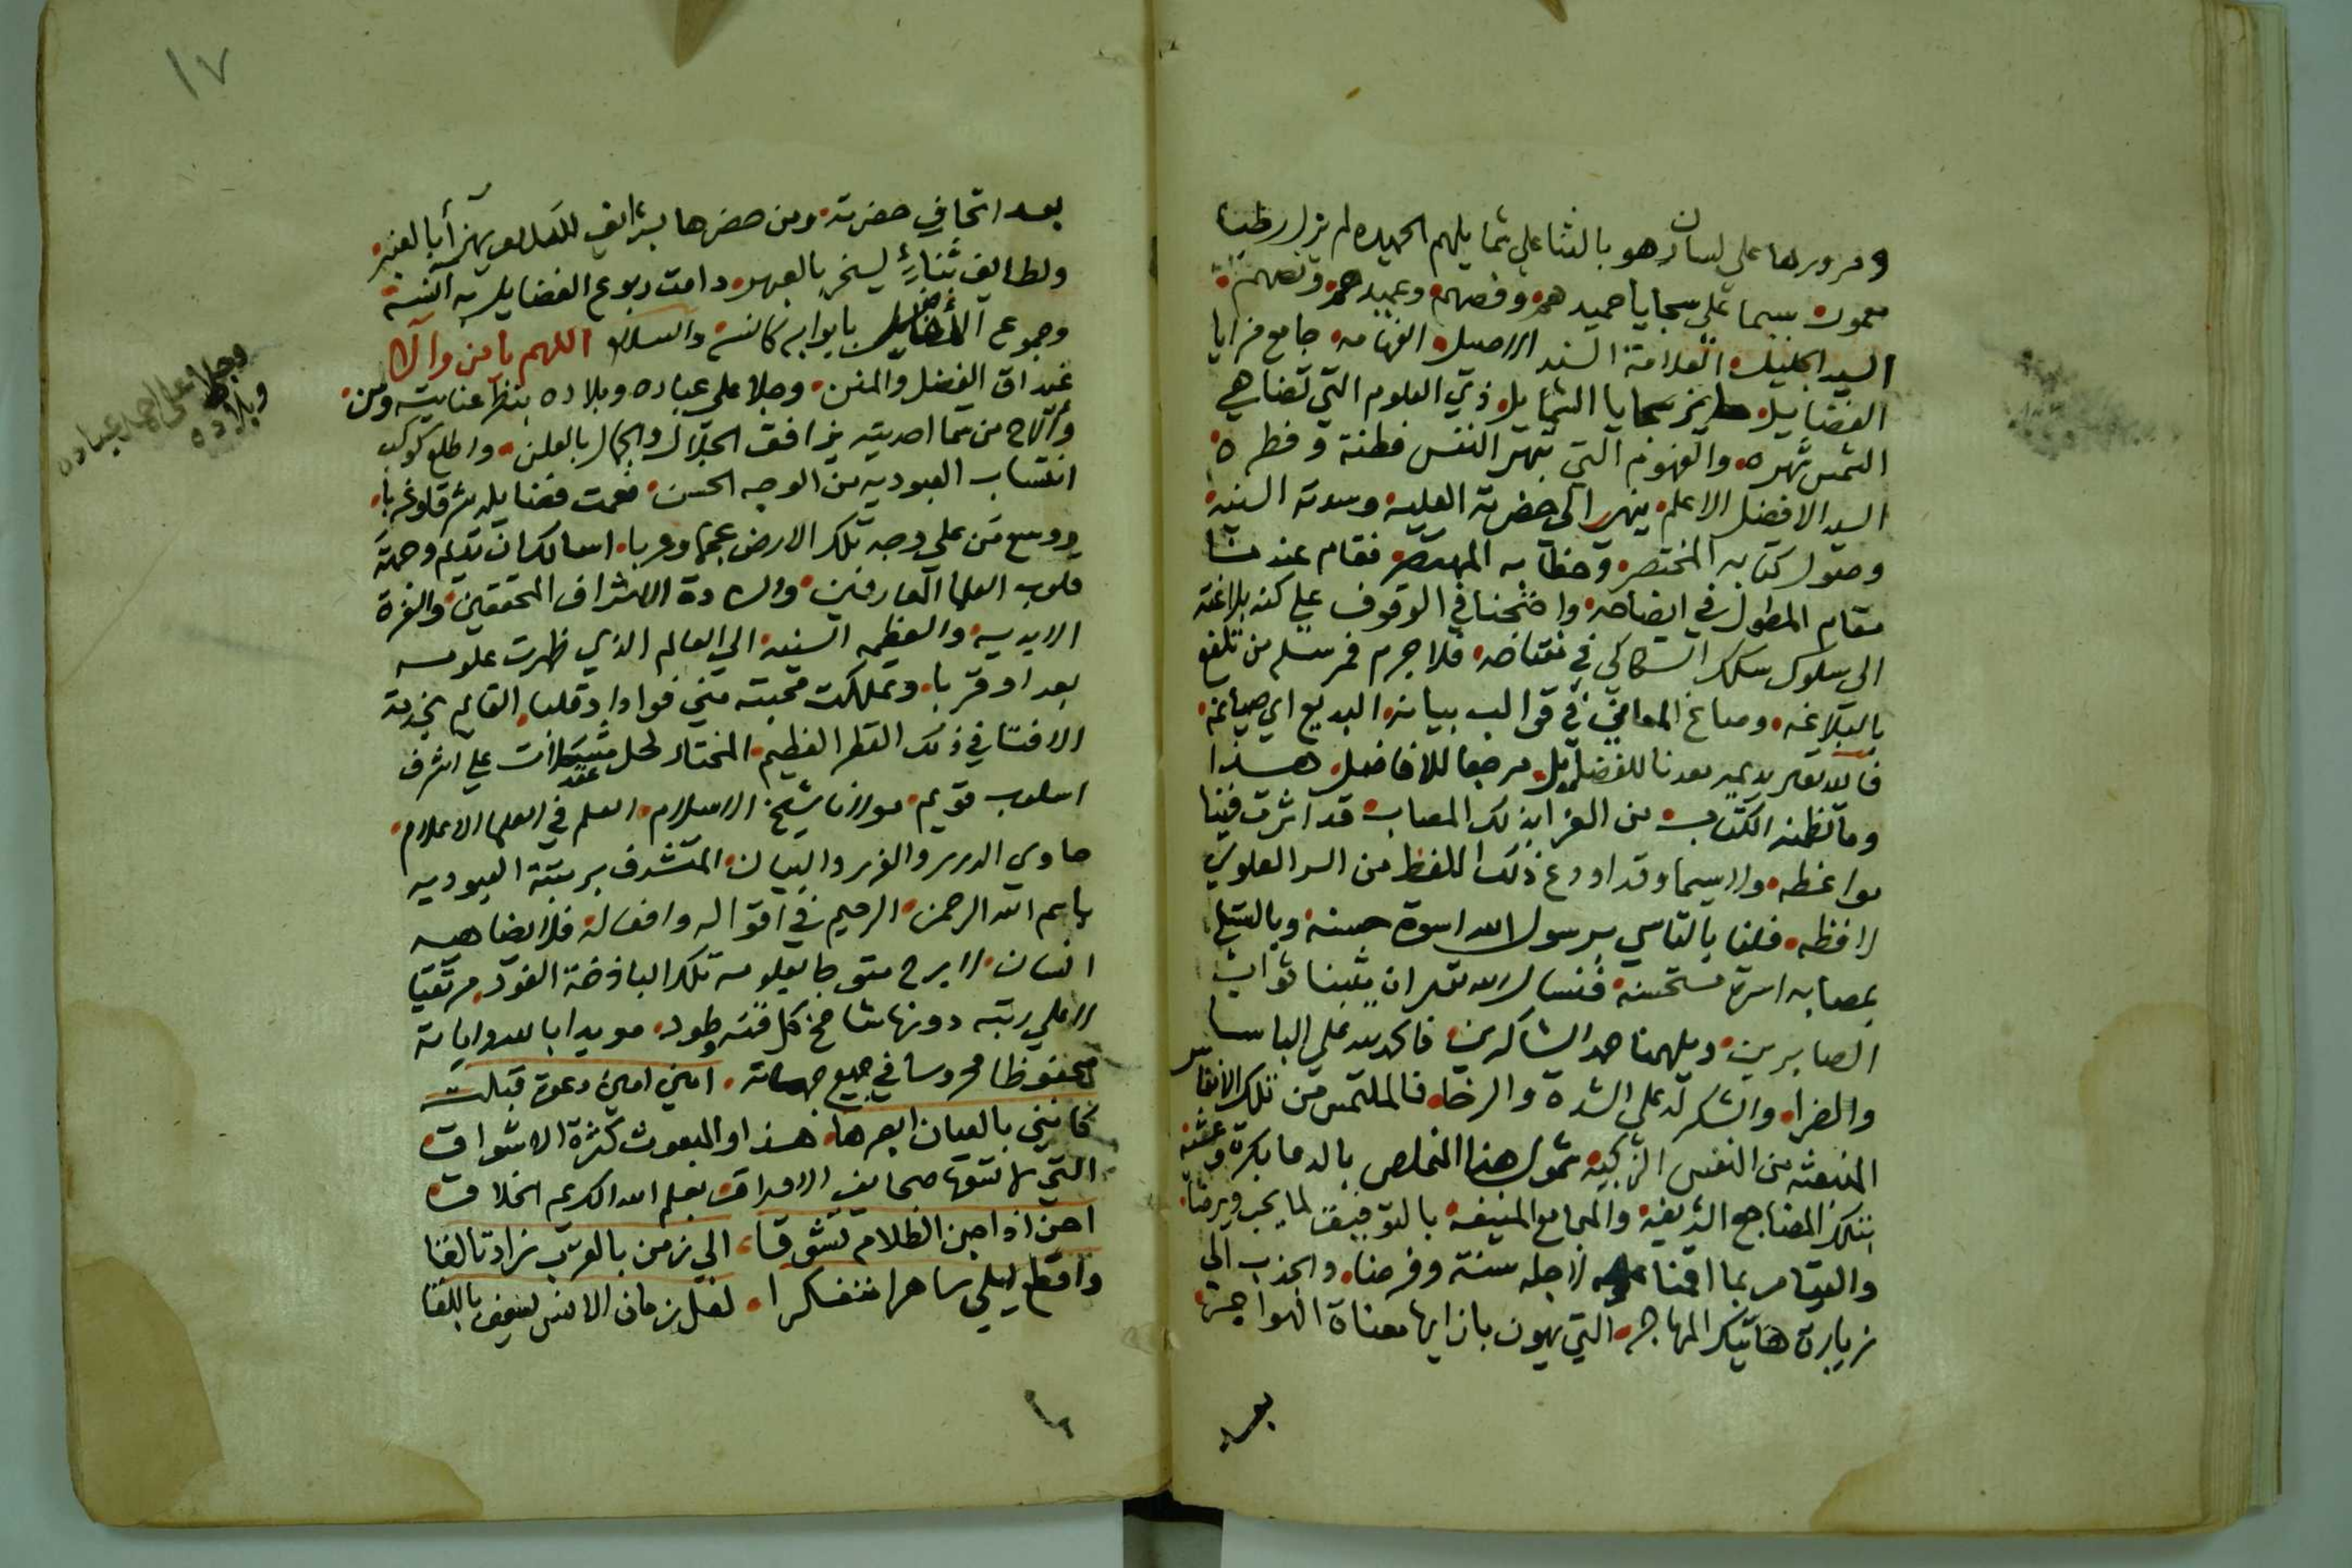 ومرورها على لسان هو بالثنا على شمايلهم الحميده لم يزل رطبا
معمورة سيما على سجايا حميدهم وفهمهم وعميدهم
السيد الجليل العلامة السند الاصيل الفهامه جامع مزايا
الفضايل سجايا الشمايل ذي العلوم التي تضاهي
الشمس شهره والفهوم التي تبهر النفس فطنة وفطره
السيد الافضل الاعلم ينهى الى حضرته العلية وسدته السنية
وصول كتابه المختصر وخطابه فقام عندنا
مقام المطول في ايضاحه واحتجنا في الوقوف على كنه بلاغته
الى سلوك مسلك السكاكي في فلا جرم من تلفع
بالبلاغه وصاغ المعاني في قوالب بيانه البديع اي صياغه
فالله تعالى يديمه معدنا للفضايل مرجعا للافاضل هذا
وما تضمنه الكتاب من العزا بذلك المصاب قد اثرت فينا
مواعظه ولاسيما وقد اودع ذلك اللفظ من السر العلوي
لافظه فلنا بالتاسي برسول الله اسوة حسنه وبالتسلي
بمصابه اسرة مستحسنه فنسال الله تعالى ان يثيبنا ثواب
الصابرين ويلهمنا حمد الشاكرين فالحمد لله على الباسا
والضرا والشكر له على الشدة والرخا فالملتمس من تلك الانفاس
المنبعثه من النفس الزكيه شمول هذا المخلص بالدعا بكرة وعشية
بتلك المضاجع الشريفه والمجامع المنيفه بالتوفيق لما يحب ويرضا
والقيام بما اقمنا لاجله سنة وفرضا والجذب الى
زيارة هاتيك المهاجر التي يهون بازايها معناة الهواجر
بعد
١٧
بعد اتحافي حضرته ومن حضرها بشرايف
ولطايف ثناء يسخر بالعبهر دامت ربوع الفضايل به آنسة
وجموع الأفاضل بابوابه كانسة والسلام اللهم يامن والا
غيداق الفضل والمنن وجلا على عباده وبلاده بنظر عنايته ومن
وألاح من سما احديته في افق الجلال والجمال بالعلن واطلع كوكب
انتساب العبوديه من الوجه الحسن فعمت فضايله شرقا وغربا
ووسع من على وجه تلك الارض عجما وعربا اسالك ان تديم وجهة
قلوب العلما العارفين والسادة الاشراف المحققين
والعظمه السنيه الى العالم الذي ظهرت علومه
بعدا وقربا وتملكت محبته مني فوادا وقلبا القايم بخدمة
الافتا في ذلك القطر العظيم المختار لحل عقد مشكلات على اشرف
اسلوب قويم مولانا شيخ الاسلام العلم في العلما الاعلام
حاوي الدرر والغرر والتبيان المتشرف برتبة العبوديه
باسم الله الرحمن الرحيم في اقواله وافعاله فلا يضاهيه
انسان لا برح متوجا بعلومه تلك الباذخة القود مرتقيا
الاعلى رتبه دونها شامخ كل قنة وطود مويدا بالله واياته
محفوظا محروسا في جميع جهاته امين امين دعوة قبلت
كانني بالعيان ابصرها هذا والمبعوث كثرة الاشواق
التي لا تسعها صحايف الاوراق بعلم الله الكريم الخلاق
احن اذا جن الظلام تشوقا الى زمن بالقرب زاد تالفا
واقطع ليلي ساهرا متفكرا لعل زمان الانس يعقب باللقا
وجلا على احمد عباده
وبلاده